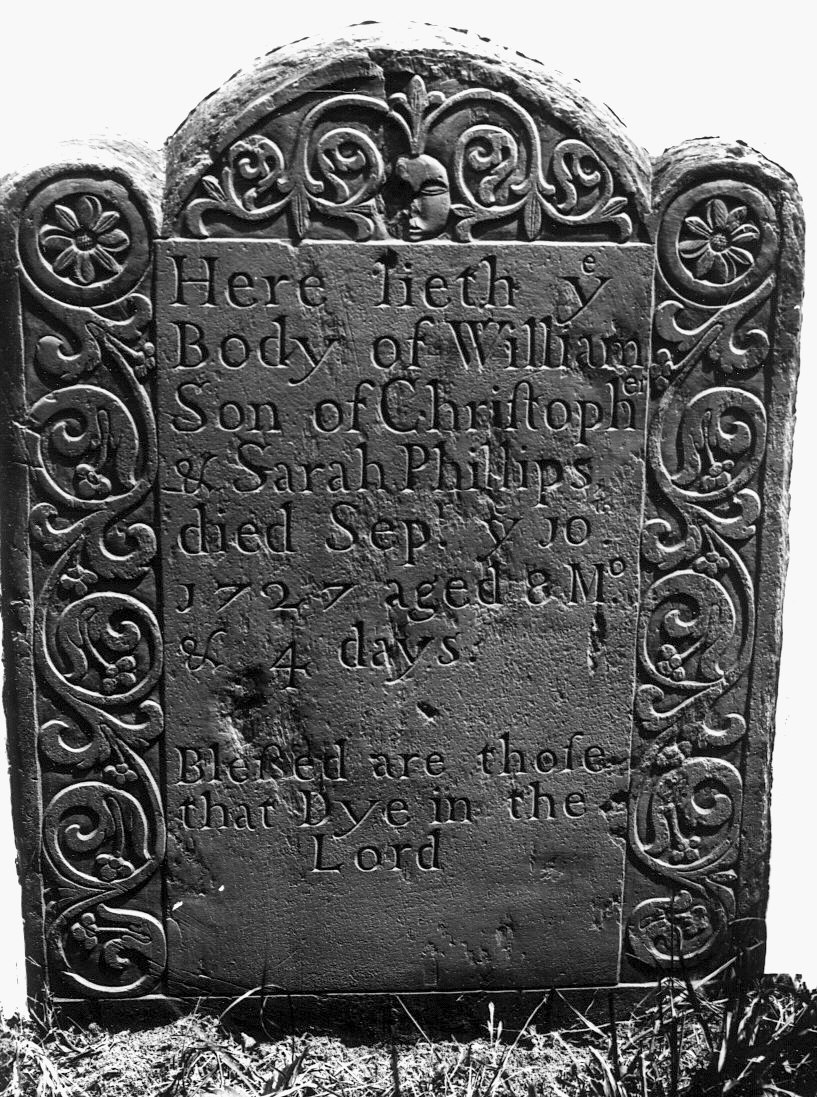 Here lieth yᵉ
Body of William
Son of Chriſtophᵉʳ
& Sarah Phillips
died Sepᵗ. yᵉ 10
1727 aged 8 Mᵒ.
& 4 days.
Bleſsed are thoſe
that Dye in the
Lord